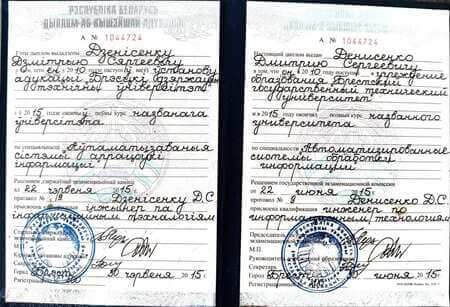 РЭСПУБЛІКА БЕЛАРУСЬ
ДЫПЛОМ АБ ВЫШЭЙШАЙ АДУКАЦЫІ
А № 1044724
Гэты дыплом выдадзены Дзенісенку
Дзмітрыю Сяргеевічу
у тым, што ён у 2010 годзе паступіў ва ўстанову
адукацыі "Брэсцкі дзяржаўны
тэхнічны ўніверсітэт"
і ў 2015 годзе скончыў поўны курс названага
ўніверсітэта
па спецыяльнасці "Аўтаматызаваныя
сістэмы апрацоўкі
інфармацыі"
Рашэннем дзяржаўнай экзаменацыйнай камісіі
ад 22 чэрвеня 2015 г.
пратакол № 9 Дзенісенку Д.С.
інжынер па
інфармацыйным тэхналогіям
Старшыня
М.П.
Сакратар
Брэст 30 чэрвеня 2015 г.
А № 1044724
Настоящий диплом выдан Денисенко
Дмитрию Сергеевичу
в том, что он в 2010 году поступил в учреждение
образования "Брестский
государственный технический
университет"
и в 2015 году окончил полный курс названного
университета
по специальности "Автоматизированные
системы обработки
информации"
Решением государственной экзаменационной комиссии
от 22 июня 2015 г.
протокол № 9 Денисенко Д.С.
присвоена квалификация инженер по
информационным технологиям
Председатель
М.П.
Секретарь
Город Брест 30 июня 2015 г.